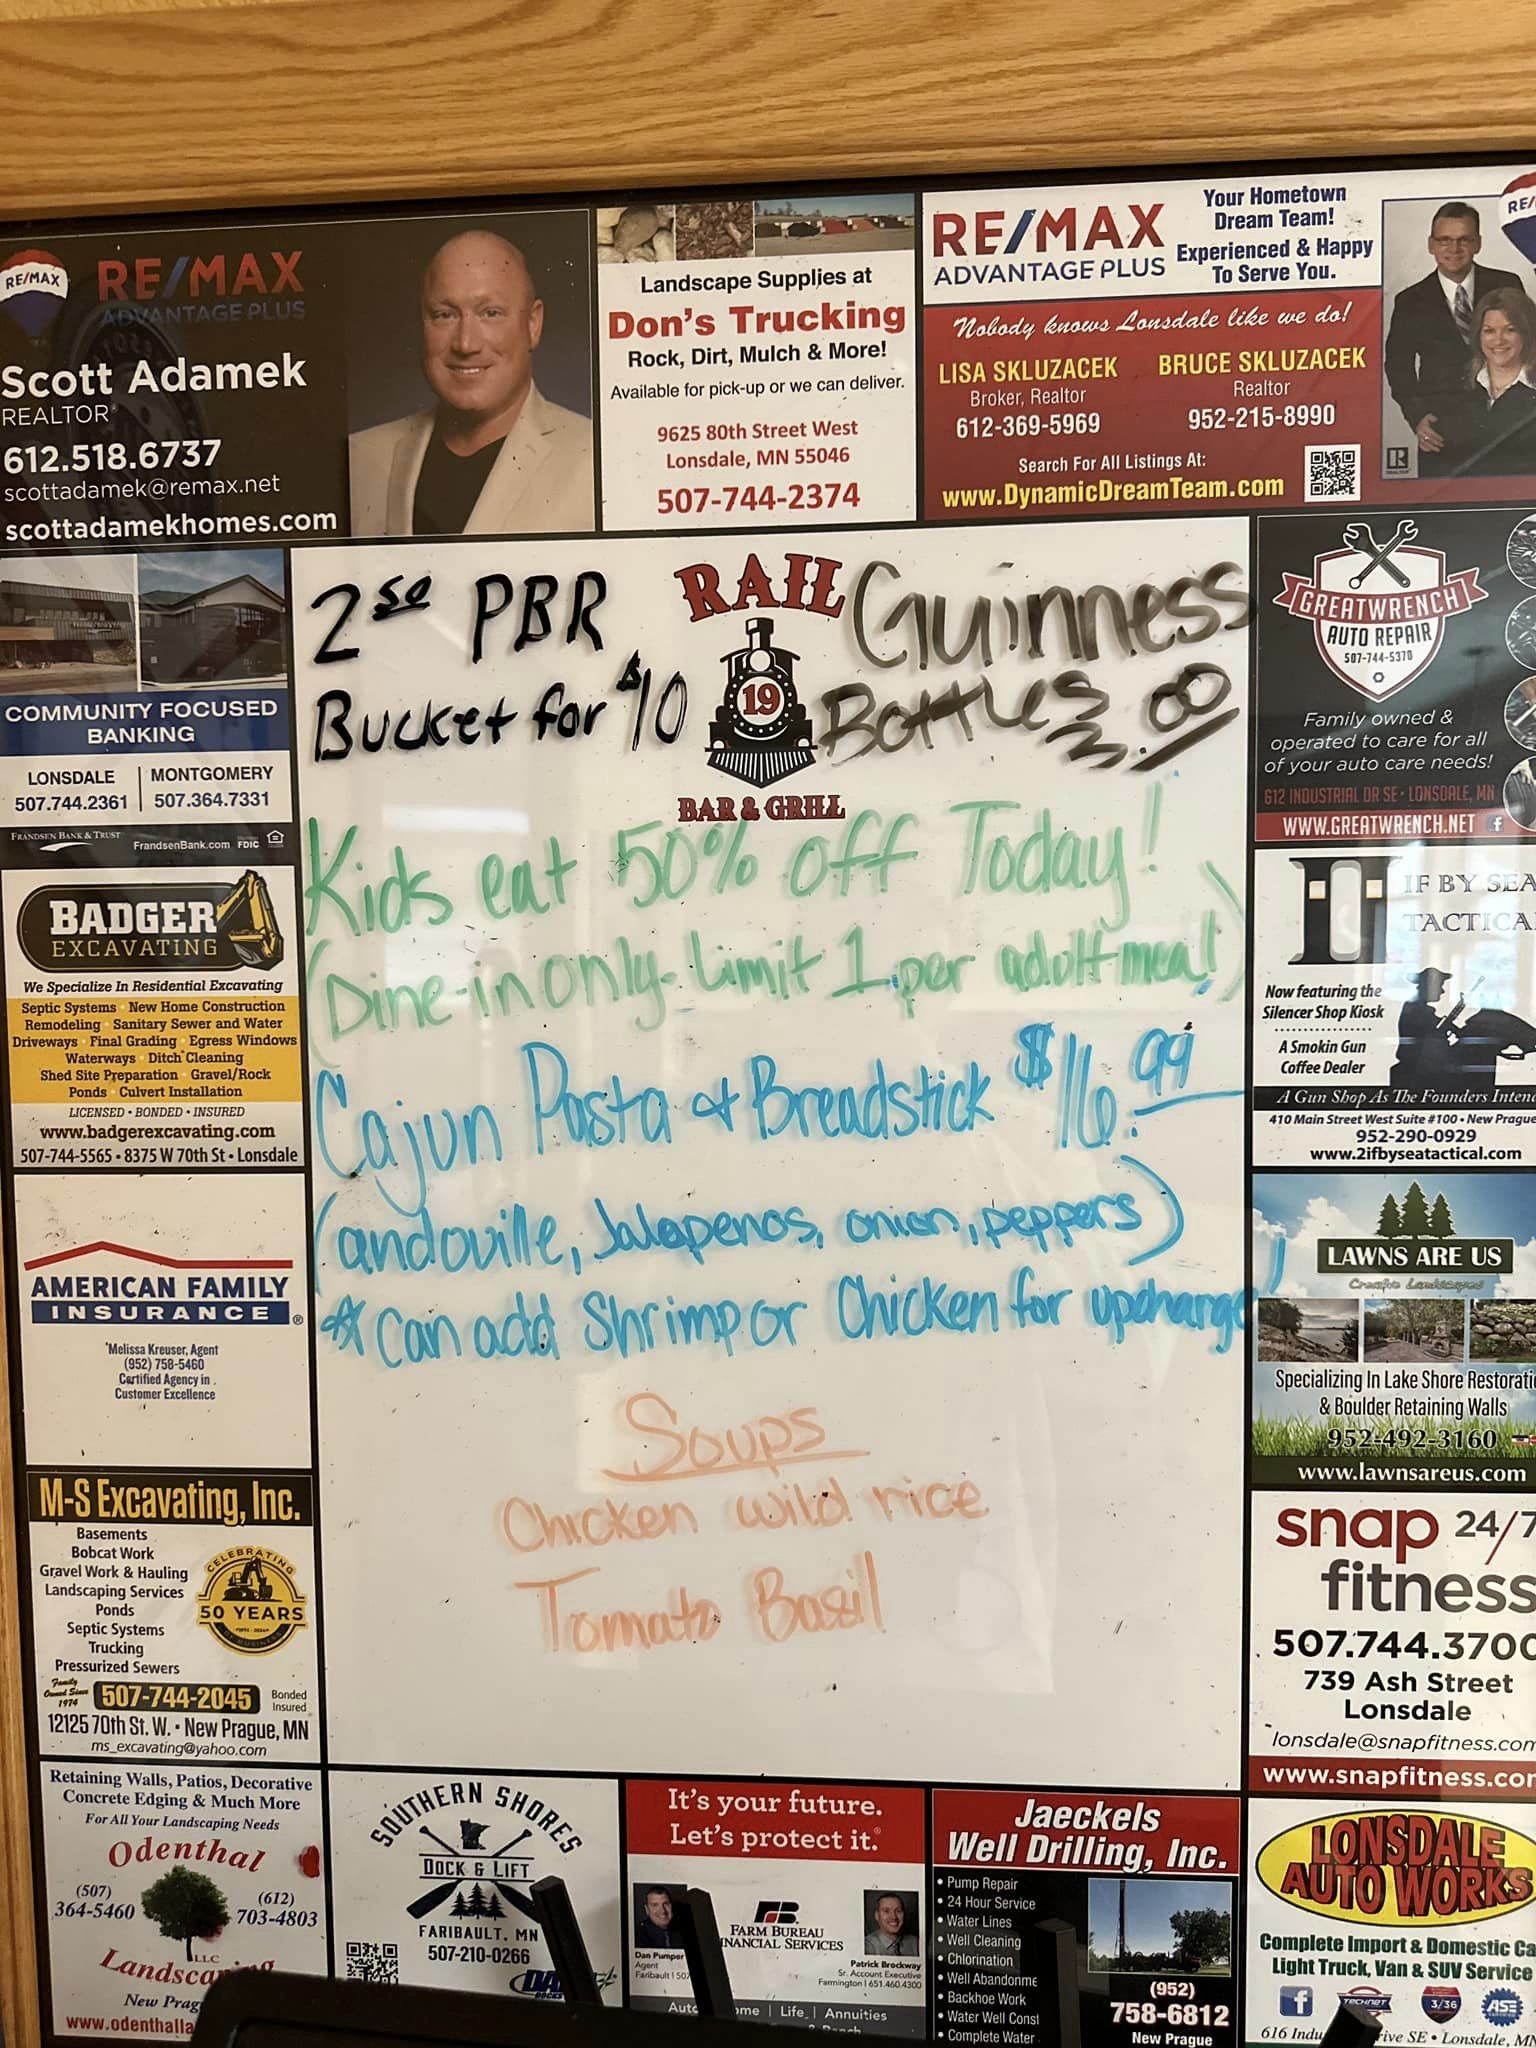 RE/MAX
RE/MAX
ADVANTAGE PLUS
Scott Adamek
REALTOR®
612.518.6737
scottadamek@remax.net
scottadamekhomes.com
Landscape Supplies at
Don's Trucking
Rock, Dirt, Mulch & More!
Available for pick-up or we can deliver.
9625 80th Street West
Lonsdale, MN 55046
507-744-2374
RE/MAX
ADVANTAGE PLUS
Your Hometown
Dream Team!
Experienced & Happy
To Serve You.
Nobody knows Lonsdale like we do!
LISA SKLUZACEK
Broker, Realtor
612-369-5969
BRUCE SKLUZACEK
Realtor
952-215-8990
Search For All Listings At:
www.DynamicDreamTeam.com
COMMUNITY FOCUSED
BANKING
LONSDALE
507.744.2361
MONTGOMERY
507.364.7331
FRANDSEN BANK & TRUST
FrandsenBank.com FDIC
BADGER
EXCAVATING
We Specialize In Residential Excavating
Septic Systems • New Home Construction
Remodeling • Sanitary Sewer and Water
Driveways • Final Grading • Egress Windows
Waterways • Ditch Cleaning
Shed Site Preparation • Gravel/Rock
Ponds • Culvert Installation
LICENSED • BONDED • INSURED
www.badgerexcavating.com
507-744-5565 • 8375 W 70th St • Lonsdale
AMERICAN FAMILY
INSURANCE®
Melissa Kreuser, Agent
(952) 758-5460
Certified Agency in
Customer Excellence
M-S Excavating, Inc.
Basements
Bobcat Work
Gravel Work & Hauling
Landscaping Services
Ponds
Septic Systems
Trucking
Pressurized Sewers
CELEBRATING
50 YEARS
OF BUSINESS
Family
Owned Since
1974
507-744-2045
Bonded
Insured
12125 70th St. W. • New Prague, MN
ms_excavating@yahoo.com
Retaining Walls, Patios, Decorative
Concrete Edging & Much More
For All Your Landscaping Needs
Odenthal
(507)
364-5460
(612)
703-4803
LLC
2 50 PBR
Bucket for $10
RAIL
19
BAR & GRILL
Guinness
Bottles
3.00
Kids eat 50% off Today!
(Dine-in only- Limit 1 per adult meal)
Cajun Pasta & Breadstick $16.99
(andoville, Jalapenos, onion, peppers)
* Can add Shrimp or Chicken for upcharge!
Soups
Chicken wild rice
Tomato Basil
GREATWRENCH
AUTO REPAIR
507-744-5370
Family owned &
operated to care for all
of your auto care needs!
612 INDUSTRIAL DR SE • LONSDALE, MN
WWW.GREATWRENCH.NET
IF BY SEA
Now featuring the
Silencer Shop Kiosk
A Smokin Gun
Coffee Dealer
A Gun Shop As The Founders
410 Main Street West Suite #100 • New Prague
952-290-0929
www.2ifbyseatactical.com
LAWNS ARE US
Creative Landscapes
Specializing In Lake Shore
& Boulder Retaining Walls
952-492-3160
www.lawnsareus.com
snap 24/7
fitness
739 Ash Street
Lonsdale
SOUTHERN SHORES
DOCK & LIFT
FARIBAULT, MN
507-210-0266
It's your future.
Let's protect it.®
Dan Pumper
Agent
FARM BUREAU
Patrick Brockway
Sr. Account Executive
Farmington | 651.460.4300
Life | Annuities
Jaeckels
Well Drilling, Inc.
• Pump Repair
• 24 Hour Service
• Water Lines
• Well Cleaning
• Chlorination
• Backhoe Work
• Complete Water
(952)
758-6812
New Prague
LONSDALE
AUTO WORKS
Complete Import & Domestic
Light Truck, Van & SUV Service
TECHNET
3/36
ASE